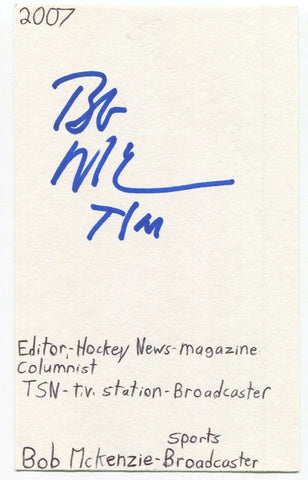 2007
Bob
McK
TSN
Editor-Hockey News-magazine
Columnist
TSN-t.v. station-Broadcaster
sports
Bob McKenzie-Broadcaster